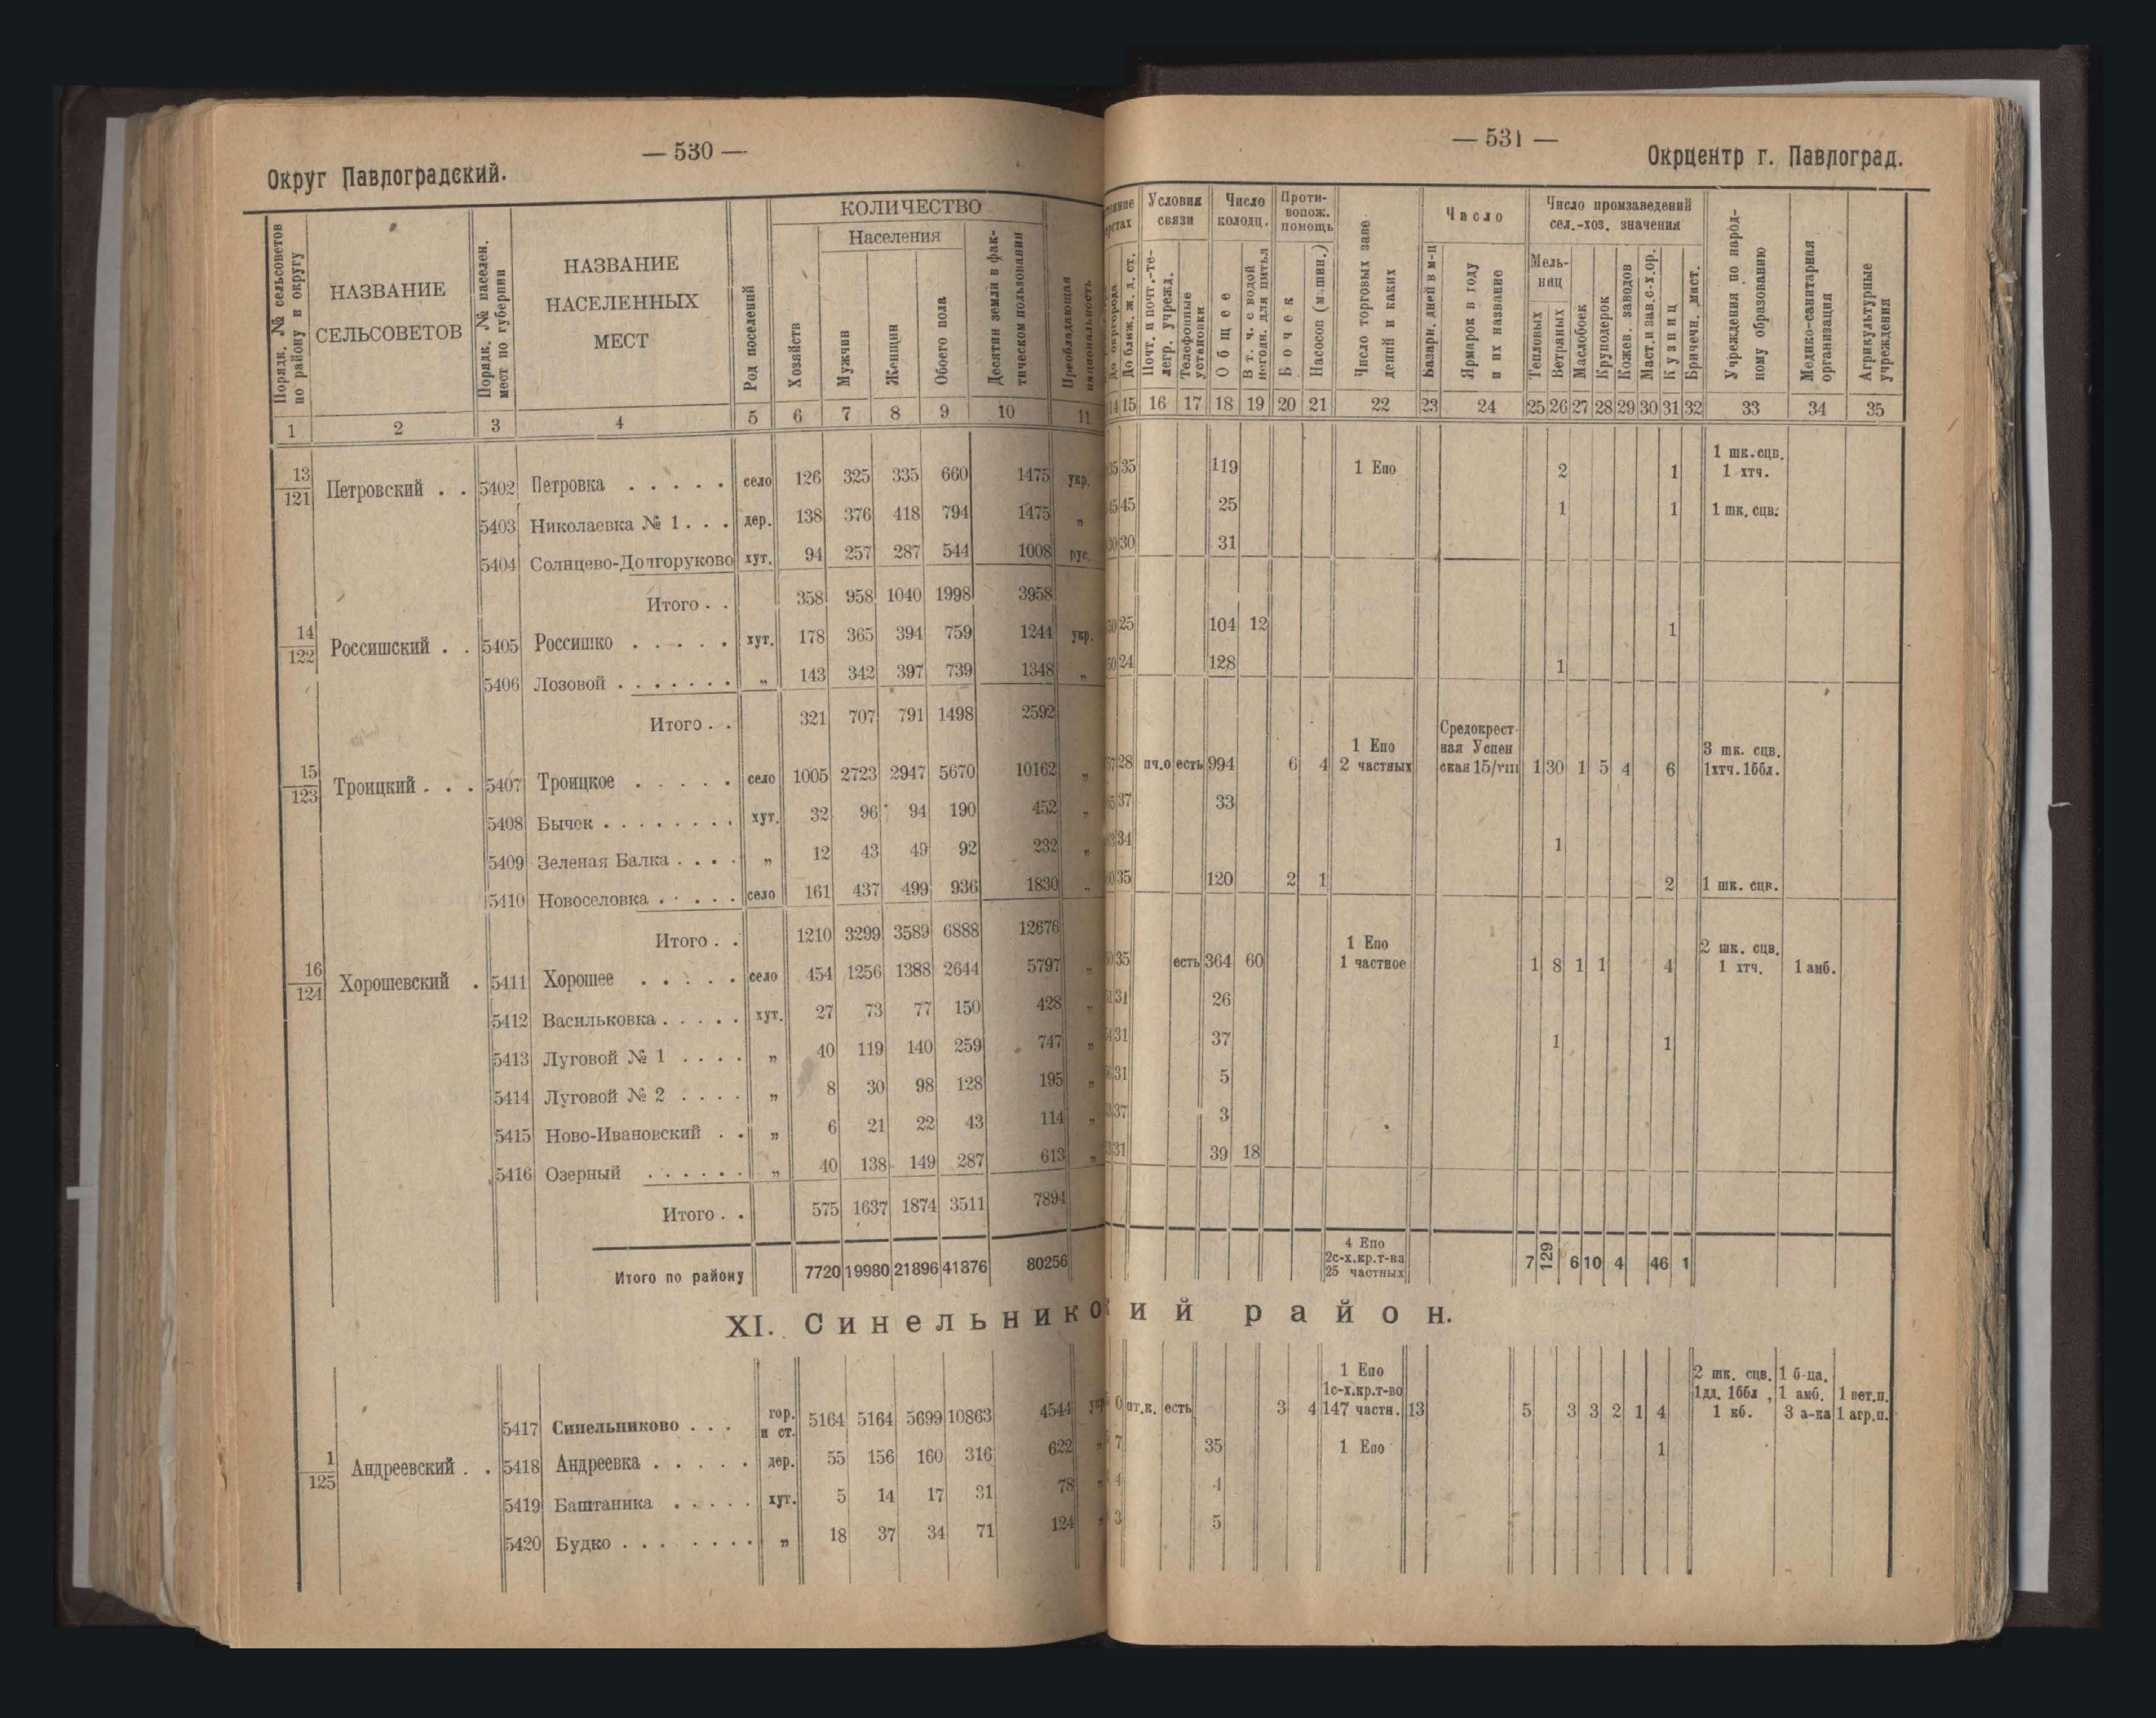 — 530 —
Округ Павлоградский.
Порядк. № сельсоветов по району и округу
НАЗВАНИЕ СЕЛЬСОВЕТОВ
Порядк. № населен. мест по губернии
НАЗВАНИЕ НАСЕЛЕННЫХ МЕСТ
Род поселений
КОЛИЧЕСТВО
Хозяйств
Населения
Мужчин
Женщин
Обоего пола
Десятин земли в фактическом пользовании
Преобладающая национальность
1 2 3 4 5 6 7 8 9 10 11
13/121 Петровский . . 5402 Петровка . . . . . село 126 325 335 660 1475 укр.
5403 Николаевка № 1 . . . дер. 138 376 418 794 1475 „
5404 Солнцево-Долгоруково хут. 94 257 287 544 1008 рус.
Итого . . 358 958 1040 1998 3958
14/122 Россишский . . 5405 Россишко . . . . . хут. 178 365 394 759 1244 укр.
5406 Лозовой . . . . . . . „ 143 342 397 739 1348 „
Итого . . 321 707 791 1498 2592
15/123 Троицкий . . . 5407 Троицкое . . . . . село 1005 2723 2947 5670 10162 „
5408 Бычек . . . . . . . . хут. 32 96 94 190 452 „
5409 Зеленая Балка . . . . „ 12 43 49 92 232 „
5410 Новоселовка . . . . . село 161 437 499 936 1830 „
Итого . . 1210 3299 3589 6888 12676
16/124 Хорошевский . 5411 Хорошее . . . . . село 454 1256 1388 2644 5797 „
5412 Васильковка . . . . . хут. 27 73 77 150 428 „
5413 Луговой № 1 . . . . „ 40 119 140 259 747 „
5414 Луговой № 2 . . . . „ 8 30 98 128 195 „
5415 Ново-Ивановский . . „ 6 21 22 43 114 „
5416 Озерный . . . . . . „ 40 138 149 287 613 „
Итого . . 575 1637 1874 3511 7894
Итого по району 7720 19980 21896 41876 80256
XI. Синельнико
5417 Синельниково . . . гор. и ст. 5164 5164 5699 10863 4544 укр
1/125 Андреевский . . 5418 Андреевка . . . . . дер. 55 156 160 316 622 „
5419 Баштаника . . . . . хут. 5 14 17 31 78 „
5420 Будко . . . . . . . . „ 18 37 34 71 124 „
— 531 —
Окрцентр г. Павлоград.
До ближ. ж. д. ст.
Условия связи
Почт. и почт.-телегр. учрежд.
Телефонные установки
Число колодц.
Общее
В т. ч. с водой негодн. для питья
Противопож. помощь
Бочек
Насосов (машин.)
Число торговых заведений и каких
Число
Базарн. дней в м-ц
Ярмарок в году и их название
Число промзаведений сел.-хоз. значения
Мельниц
Тепловых
Ветряных
Маслобоек
Круподерок
Кожев. заводов
Маст. и зав. с-х. ор.
Кузниц
Бричечн. маст.
Учреждения по народному образованию
Медико-санитарная организация
Агрикультурные учреждения
14 15 16 17 18 19 20 21 22 23 24 25 26 27 28 29 30 31 32 33 34 35
35 119 1 Епо 2 1 1 шк. сцв. 1 хтч.
45 25 1 1 1 шк. сцв.
30 31
25 104 12 1
24 128 1
28 пч.о есть 994 6 4 1 Епо 2 частных Средокрестная Успенская 15/VIII 1 30 1 5 4 6 3 шк. сцв. 1хтч. 1ббл.
37 33
34 1
35 120 2 1 2 1 шк. сцв.
35 есть 364 60 1 Епо 1 частное 1 8 1 1 4 2 шк. сцв. 1 хтч. 1 амб.
31 26
31 37 1 1
31 5
37 3
31 39 18
4 Епо 2с-х.кр.т-ва 25 частных 7 129 6 10 4 46 1
ий район.
0 пт.к. есть 3 4 1 Епо 1с-х.кр.т-во 147 частн. 13 5 3 3 2 1 4 2 шк. сцв. 1дд. 1ббл , 1 кб. 1 б-ца. 1 амб. 3 а-ка 1 вет.п. 1 агр.п.
7 35 1 Епо 1
4 4
3 5